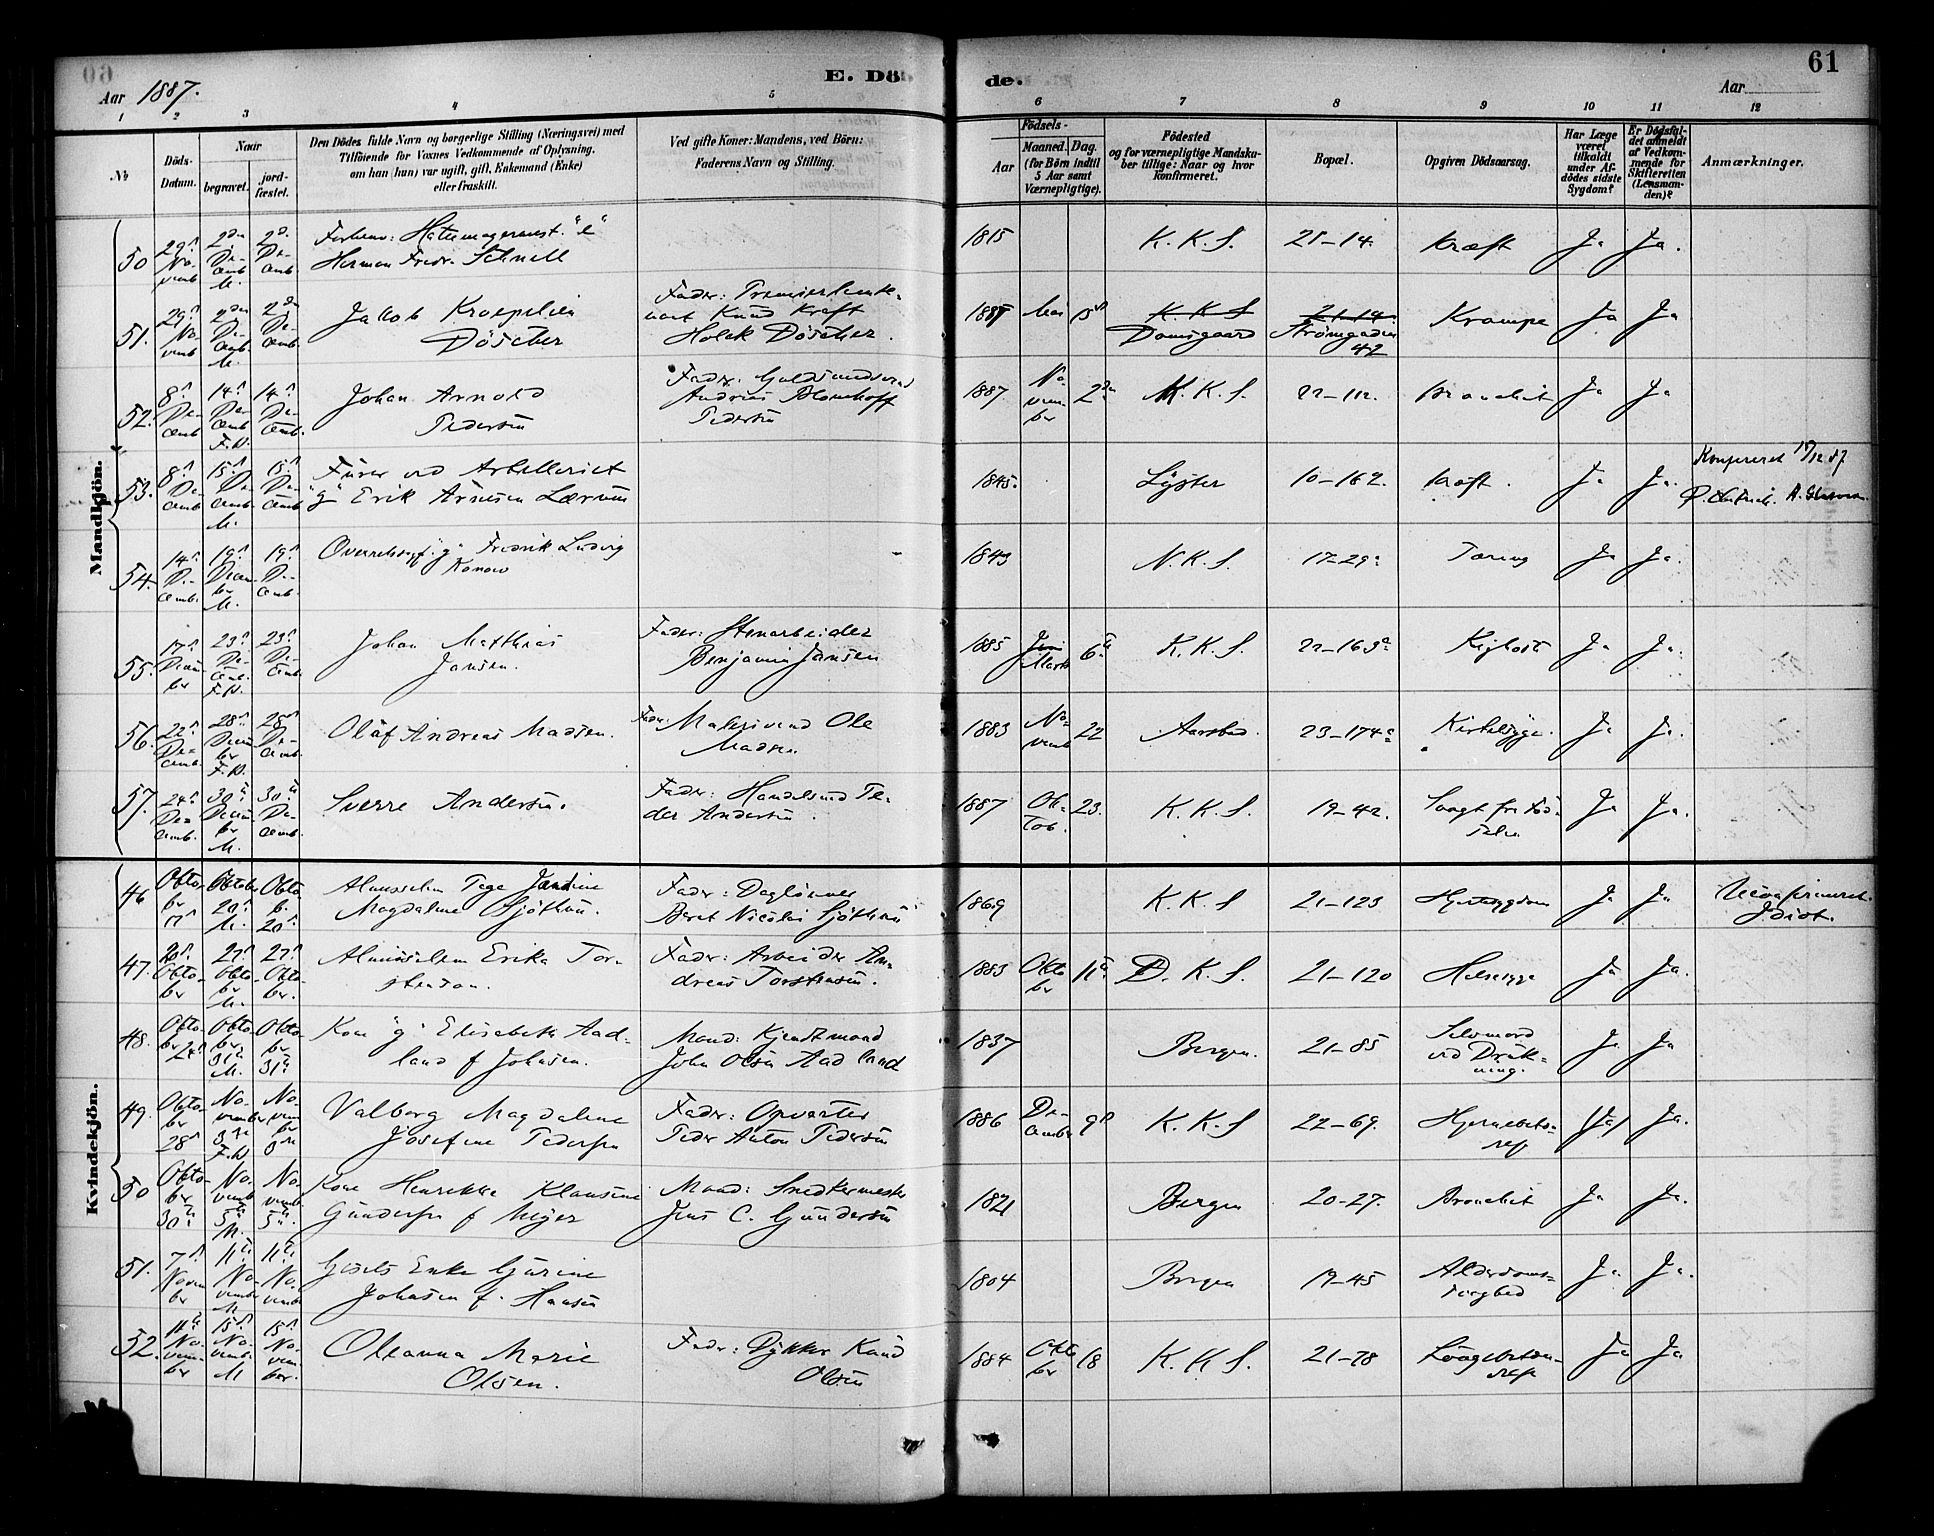 Aar 1887.
E. Döde.
61
Aar
1 2 3 4 5 6 7 8 9 10 11 12
№
Döds-Datum.
Naar
begravet.
jordfæstet.
Den Dödes fulde Navn og borgerlige Stilling (Næringsvei) med
Tilföiende for Voxnes Vedkommende af Oplysning,
om han (hun) var ugift, gift, Enkemand (Enke)
eller fraskilt.
Ved gifte Koner: Mandens, ved Börn:
Faderens Navn og Stilling.
Födsels-
Aar
Maaned. Dag.
(for Börn indtil
5 Aar samt
Værnepligtige).
Födested
og for værnepligtige Mandska-
ber tillige: Naar og hvor
konfirmeret.
Bopæl.
Opgiven Dödsaarsag.
Har Læge
været
tilkaldt
under Af-
dödes sidste
Sygdom?
Er Dödsfal-
det anmeldt
af Vedkom-
mende for
Skifteretten
(Lensman-
den)?
Anmærkninger.
Mandkjön.
50 29 November 2den Decemb. M. 2d. Decemb.
Herman Fredr. Schnell
1815 K. K. S. 21-14. Kræft Ja Ja.
51. 29 Novemb 2den Decemb. M. 2den Decemb.
Jakob Kroepelien
Döscher
Fader: Premierleut-
nant Knud Kraft
Holck Döscher.
1887 Mai K K S
Damsgaard 21-14
Strömgaden
42 Krampe Ja Ja
52. 8 Decemb 14 Decemb F.N. 14 Decemb.
Johan Arnold
Pedersen
Andreas Blomhoff
Pedersen
1887 November 2den K. K. S. 22-112. Bronchit Ja Ja
53. 8 Decemb 15 Decemb M. 15 Decemb
"g" Erik Arnesen Lærum
1845. Lyster 10-162. Kræft. Ja Ja.
54. 14 Decemb. 19 December M. 19 Decemb.
"g" Fredrik Ludvig
Konow
1843 N. K. S. 17-29a Tæring Ja Ja.
55. 17 December 23 Decemb. F.N. 23 Decemb
Johan Matthias
Jansen.
Fader: Stenarbeider
Benjamin Jansen
1885 Juni
Marts 6te K. K. S. 22-163a Kighoste Ja Ja.
56. 22 Decemb. 28 December F.N. 28 Decemb.
Olaf Andreas Madsen.
Fader: Malersvend Ole
Madsen
1883 Novemb 22 Aarstad. 23-174a Kirtelsyge. Ja Ja.
57. 24 Decemb. 30te December M. 30te Decemb.
Sverre Andersen.
Fader: Handelsmd Pe-
der Andersen.
1887 Oktob. 23. K. K. S. 19-42. Svagt fra Föd-
selen Ja Ja.
Kvindekjön.
46 Oktober 17 Oktober 20 M. Oktob. 20
Magdalene Sjöthun.
Fader: Daglönner
Bernt Nicolai Sjöthun
1869 K. K. S 21-123 Hjertesygdom Ja Ja Ukonfirmeret.
Idiot.
47. 20 Oktober 27 Oktober M. 27 Oktober.
Almisselem Erika Tor-
stensen.
Fader: Arbeider An-
dreas Torstensen.
1883 Oktober 11te D. K. S. 21-120 Halssyge Ja Ja.
48. Oktober 24 Oktober 31te M. Oktober 31te
Kone "g" Elisabeth Aad-
land f Johnsen.
Mand: Kjendtmand
John Olsen Aadland
1837 Bergen. 21-85 Selvmord
ved Druk-
ning. Ja Ja
49. Oktober 28 November 3die F.N November 3die
Valborg Magdalene
Josefine Pedersen
Fader: Opvarter
Peder Anton Pedersen
1886 December 9 K. K. S 22-69. Hjernebetæn-
else (Ja) Ja.
50 Oktober 30te Novemb 5te M. Novemb 5te.
Kone Henrikke Klausine
Gundersen f Meyer
Mand: Snedkermester
Jens C. Gundersen
1821 Bergen 20-27. Bronchit Ja Ja.
51. 7 November 11te November M 11te November
Gifts Enke Gurine
Johnsen f. Hansen
1804 Bergen 19-45 Alderdoms-
svaghed Ja Ja.
52. 11te November 15 Novemb. M 15 November.
Oleanna Marie
Olsen.
Fader: Dykker Knud
Olsen
1884 Oktober 18 K. K. S. 21-78 Lungebetæn-
delse Ja Ja